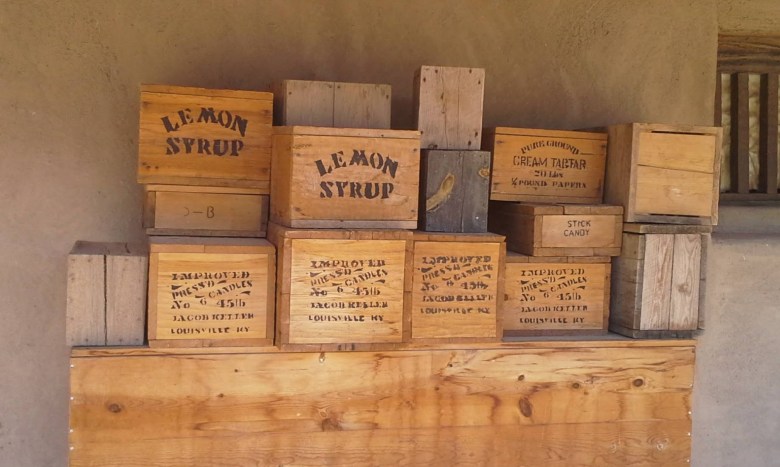 LEMON
SYRUP
LEMON
SYRUP
PURE GROUND
CREAM TARTAR
20 Lbs
¼ POUND PAPERS
-B
STICK
CANDY
IMPROVED
PRESS'D
CANDLES
No 6 45lb
JACOB KELLER
LOUISVILLE KY
IMPROVED
PRESS'D
CANDLES
No 6 45lb
JACOB KELLER
LOUISVILLE KY
IMPROVED
PRESS'D
CANDLES
No 6 45lb
JACOB KELLER
LOUISVILLE KY
IMPROVED
PRESS'D
CANDLES
No 6 45lb
JACOB KELLER
LOUISVILLE KY